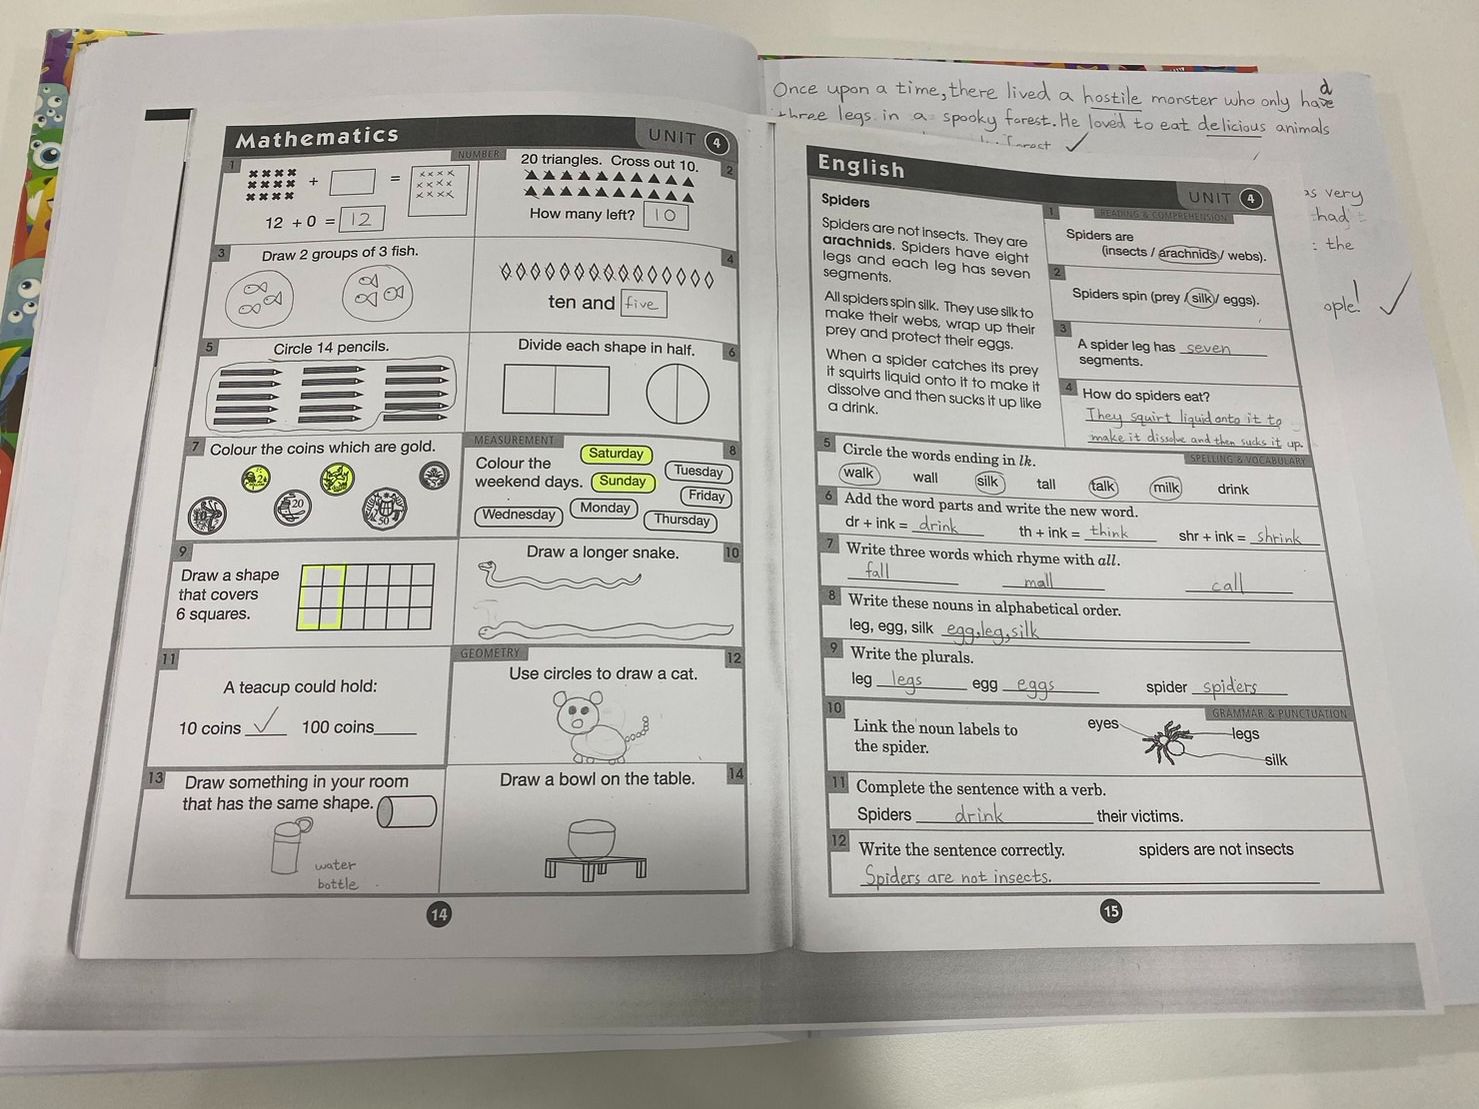 Once upon a time, there lived a hostile monster who only have
d
three legs in a spooky forest. He loved to eat delicious animals
forest
as very
had
: the
ople!
Mathematics
UNIT 4
NUMBER
1
+ =
12 + 0 = 12
2
20 triangles. Cross out 10.
How many left? 10
3
Draw 2 groups of 3 fish.
4
ten and five
5
Circle 14 pencils.
6
Divide each shape in half.
7
Colour the coins which are gold.
2
10
20
50
MEASUREMENT
8
Colour the
weekend days.
Saturday
Sunday
Tuesday
Friday
Wednesday
Monday
Thursday
9
Draw a shape
that covers
6 squares.
10
Draw a longer snake.
11
A teacup could hold:
10 coins ✓ 100 coins
GEOMETRY
12
Use circles to draw a cat.
13
Draw something in your room
that has the same shape.
water
bottle
14
Draw a bowl on the table.
14
English
UNIT 4
Spiders
Spiders are not insects. They are
arachnids. Spiders have eight
legs and each leg has seven
segments.
All spiders spin silk. They use silk to
make their webs, wrap up their
prey and protect their eggs.
When a spider catches its prey
it squirts liquid onto it to make it
dissolve and then sucks it up like
a drink.
READING & COMPREHENSION
1
Spiders are
(insects / arachnids / webs).
2
Spiders spin (prey / silk / eggs).
3
A spider leg has seven
segments.
4
How do spiders eat?
They squirt liquid onto it to
make it dissolve and then sucks it up.
SPELLING & VOCABULARY
5
Circle the words ending in lk.
walk wall silk tall talk milk drink
6
Add the word parts and write the new word.
dr + ink = drink th + ink = think shr + ink = shrink
7
Write three words which rhyme with all.
fall mall call
8
Write these nouns in alphabetical order.
leg, egg, silk egg, leg, silk
9
Write the plurals.
leg legs egg eggs spider spiders
GRAMMAR & PUNCTUATION
10
Link the noun labels to
the spider.
eyes
legs
silk
11
Complete the sentence with a verb.
Spiders drink their victims.
12
Write the sentence correctly. spiders are not insects
Spiders are not insects.
15